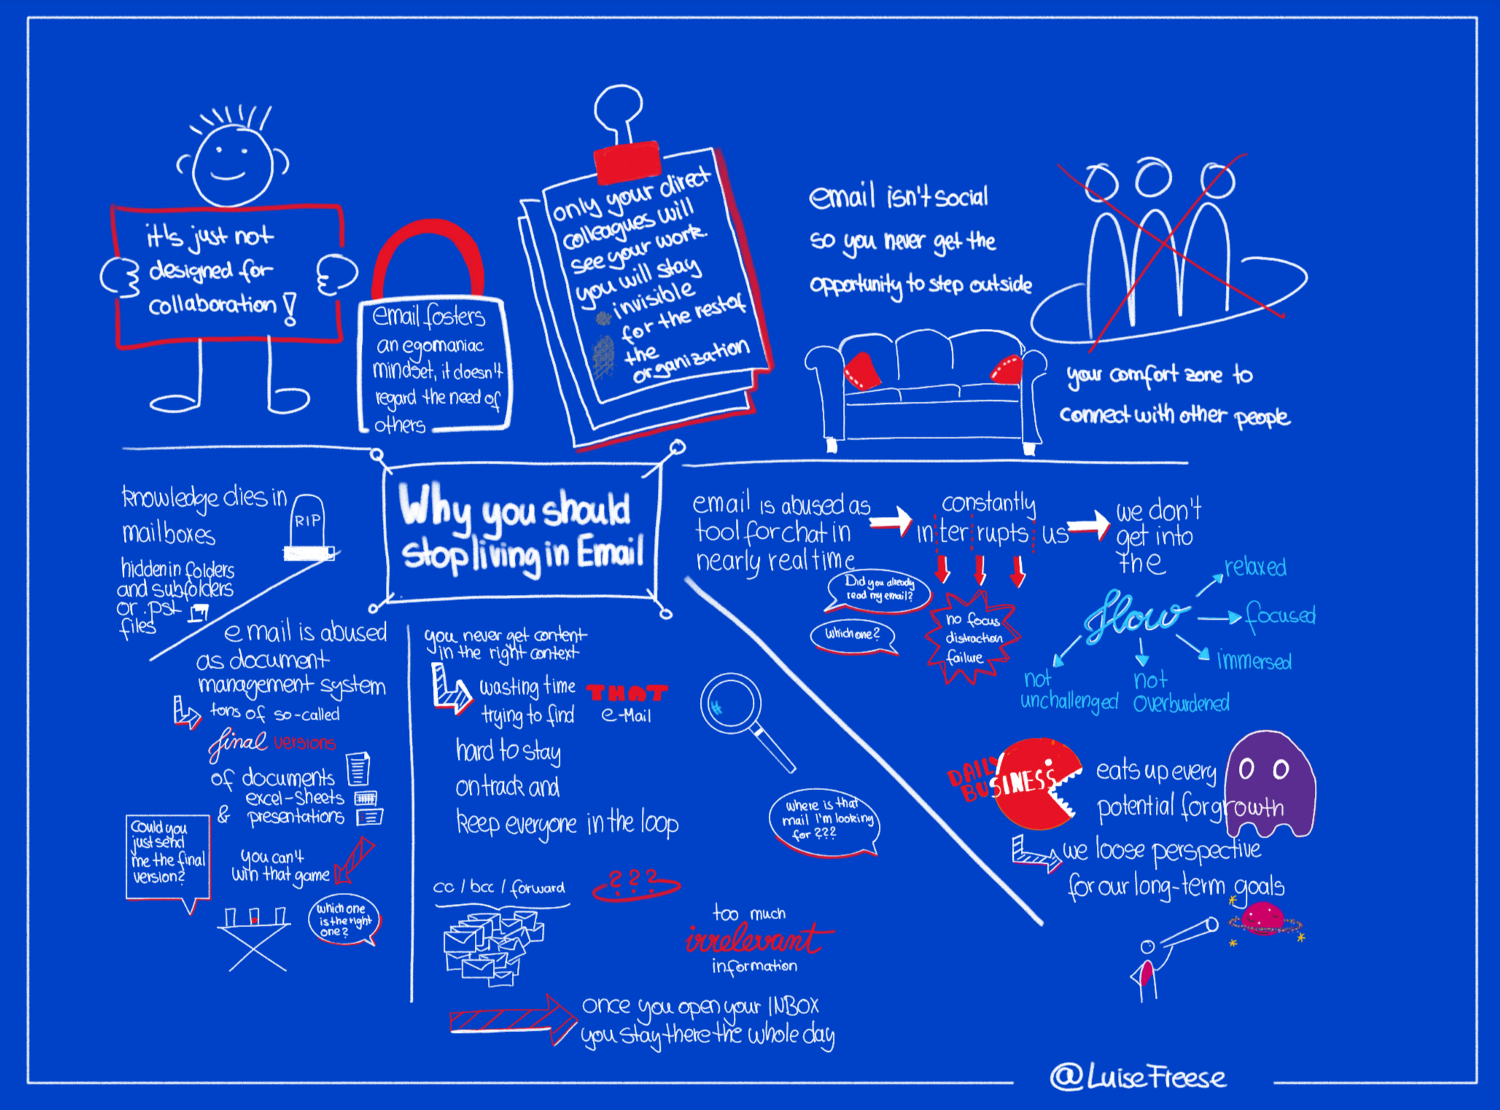 it's just not
designed for
collaboration!
email fosters
an egomaniac
mindset, it doesn't
regard the need of
others
only your direct
colleagues will
see your work.
you will stay
invisible
for the rest of
the
organization
email isn't social
so you never get the
opportunity to step outside
your comfort zone to
connect with other people
Why you should
stop living in Email
knowledge dies in
mailboxes
RIP
hidden in folders
and subfolders
or .pst
files
email is abused
as document
management system
tons of so-called
final versions
of documents
excel-sheets
& presentations
Could you
just send
me the final
version?
you can't
win that game
which one
is the right
one?
you never get content
in the right context
wasting time
trying to find
THAT
e-Mail
hard to stay
on track and
keep everyone in the loop
where is that
mail I'm looking
for ???
cc / bcc / forward
???
too much
irrelevant
information
once you open your INBOX
you stay there the whole day
email is abused as
tool for chat in
nearly real time
Did you already
read my email?
Which one?
constantly
in ter rupts us
no focus
distraction
failure
we don't
get into
the
flow
relaxed
focused
immersed
not
overburdened
not
unchallenged
DAILY
BUSINESS
eats up every
potential for growth
we loose perspective
for our long-term goals
@LuiseFreese